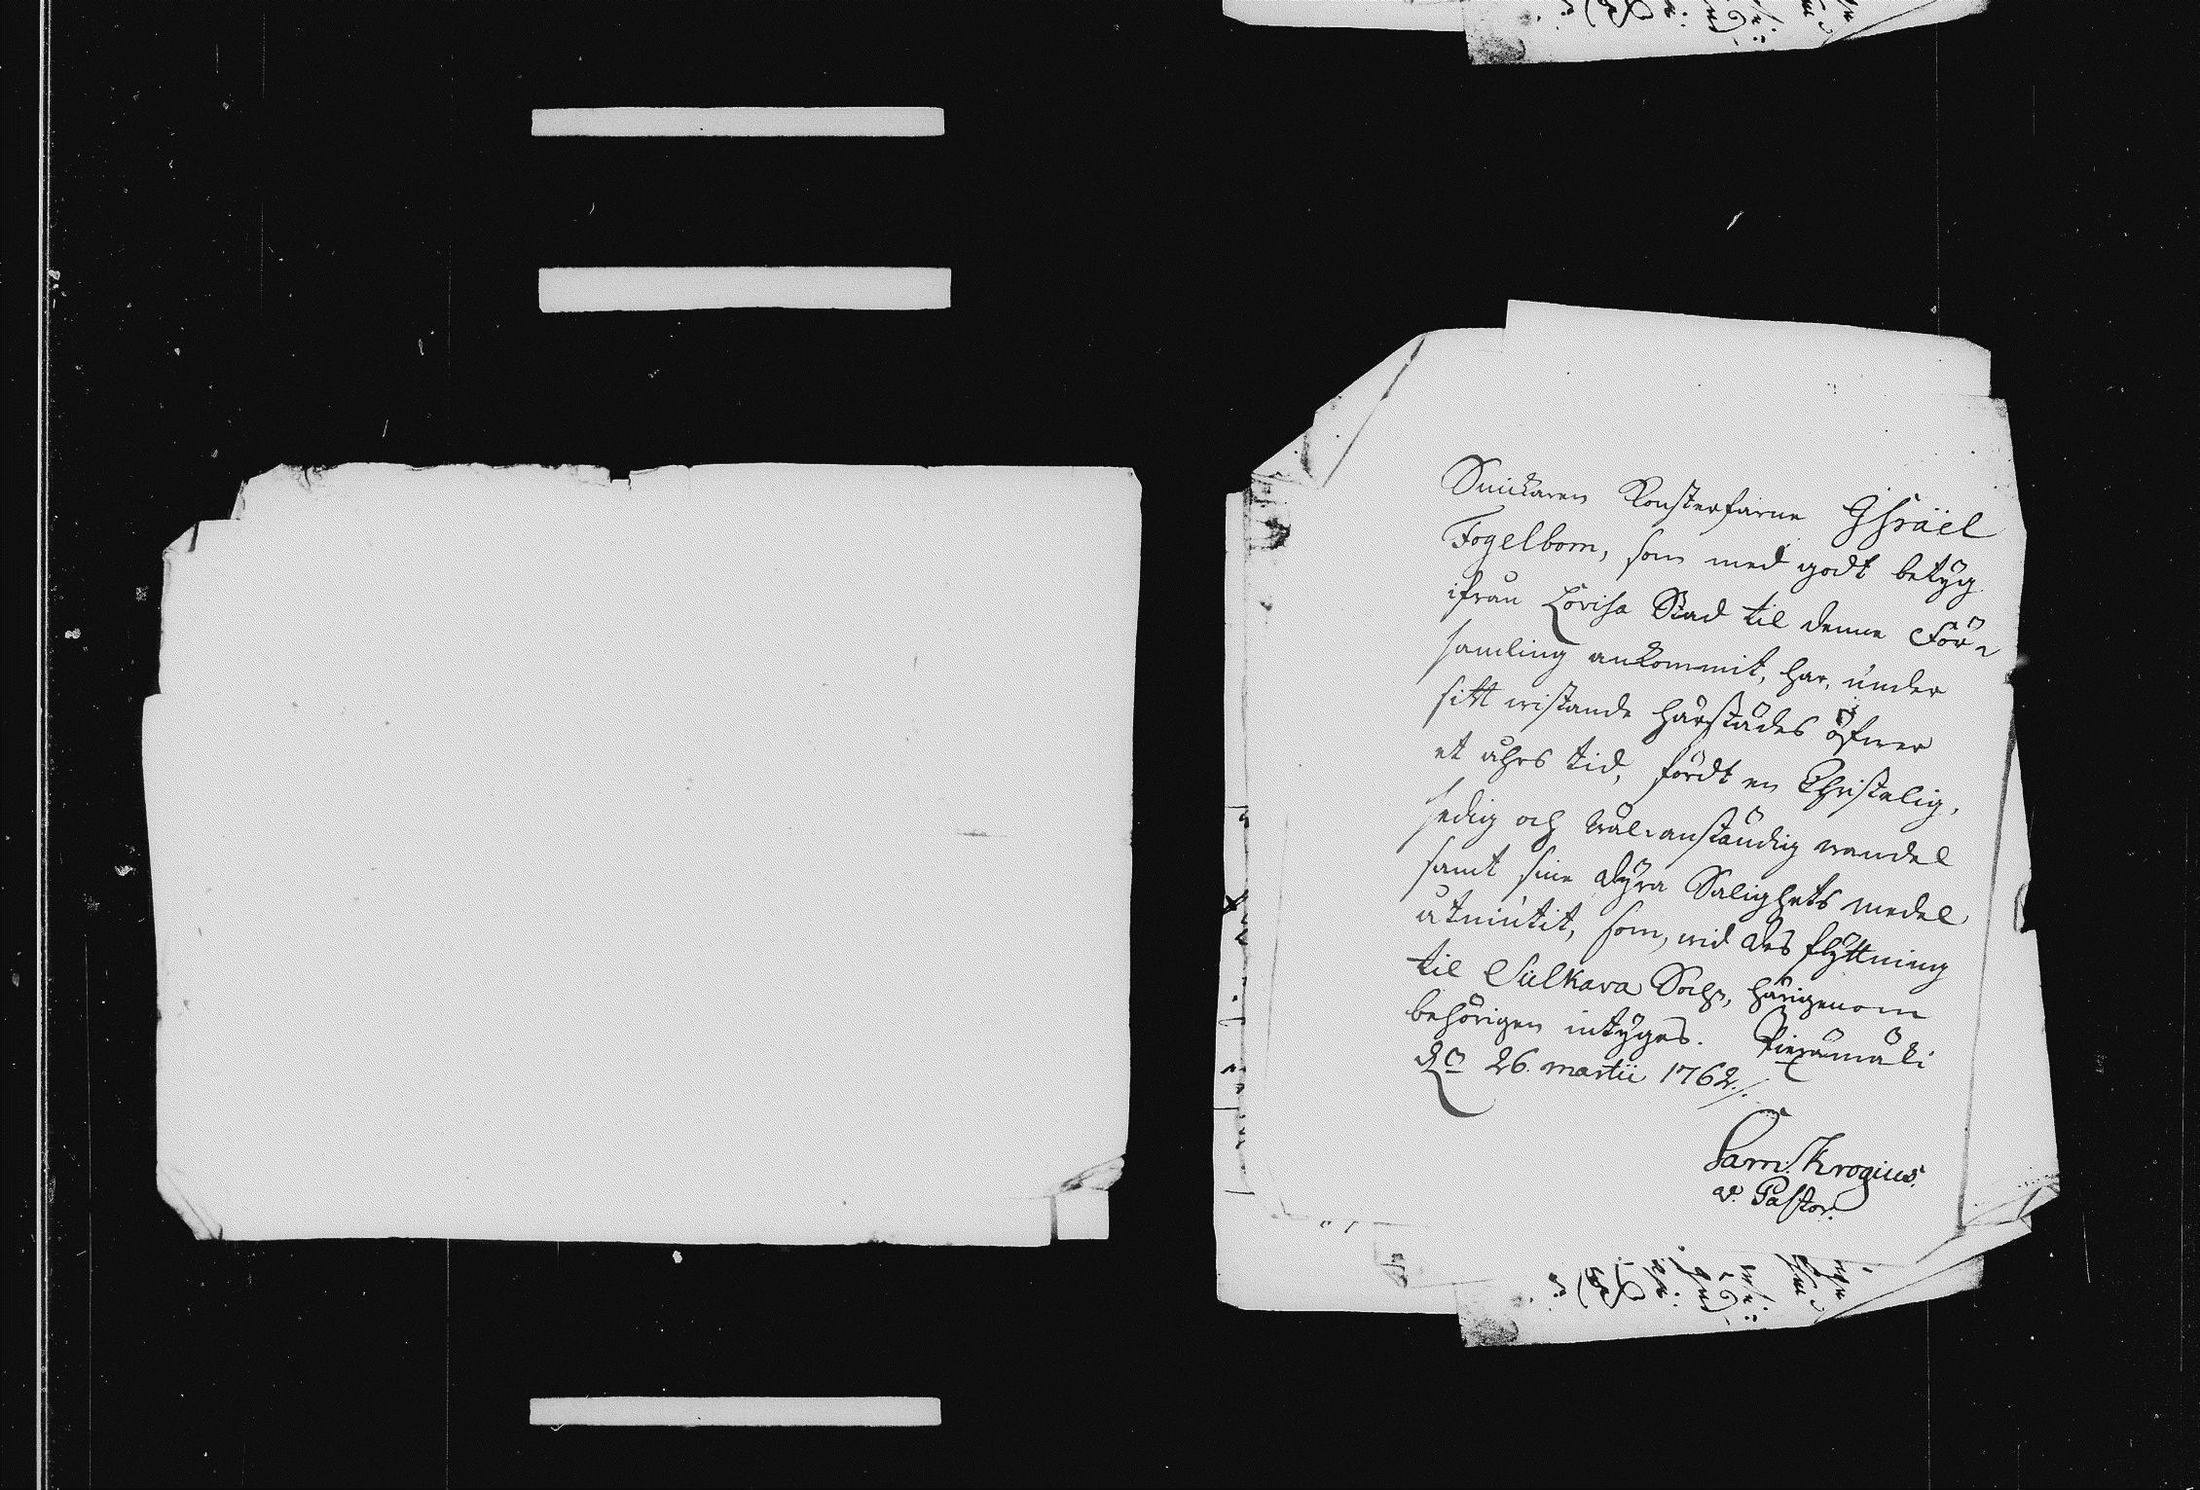 Snickaren Konsterfarne Jsräel
Fogelbom, som med godt betÿg
ifrån Lovisa Stad til denne För-
samling ankommit, har, under
sitt wistande härstädes öfwer
et åhrs tid, fördt en Christelig,
sedig och wäl-anständig wandel
samt sine dÿra Salighets medel
åtniutit, som, wid des flÿttning
til Sulkava Sochn, härigenom
behörigen intÿges. Piexämäki
dn 26. martii 1762./.
Sam: Krogius.
v. Pastor.